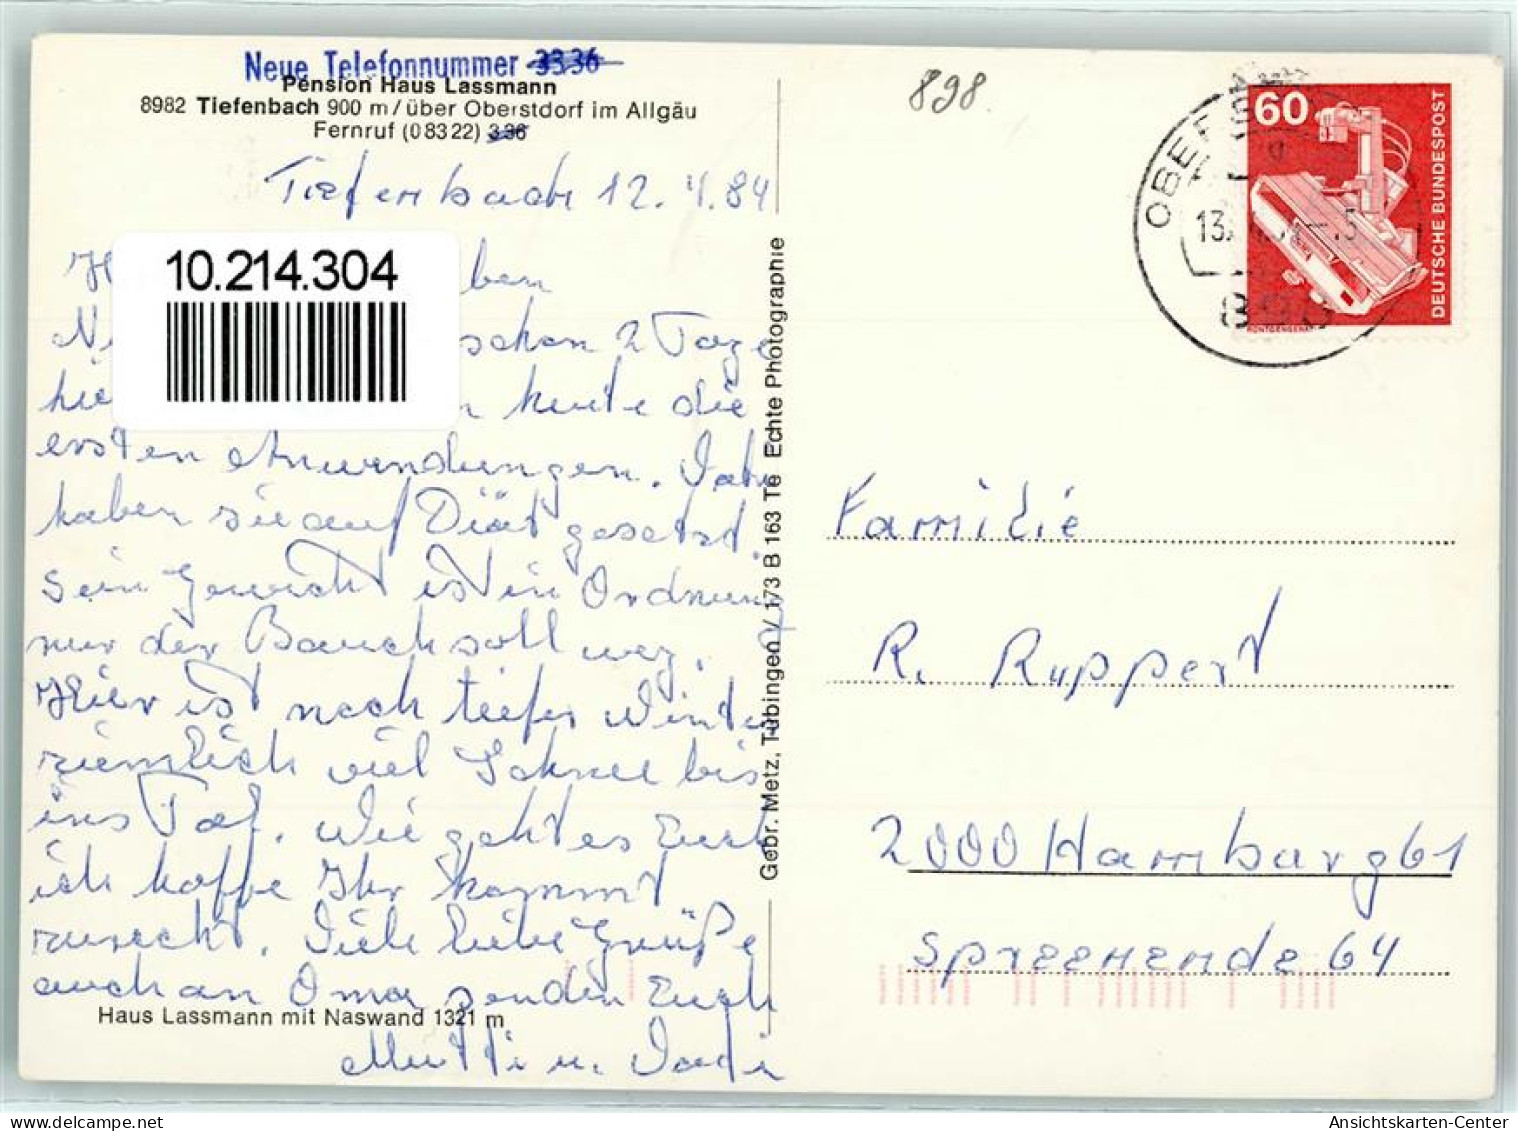 Neue Telefonnummer 3336
Pension Haus Lassmann
8982 Tiefenbach 900 m/über Oberstdorf im Allgäu
Fernruf (08322) 336
898
Tiefenbach 12. 4. 84
10.214.304
ben
schon 2 Tage
heute die
ersten Anwendungen.
haben sie auf Diät gesetzt.
Sein Gewicht ist in Ordnung
nur der Bauch soll weg.
Hier ist noch tiefer Winter
ziemlich viel Schnee bis
ins Tal. Wie geht es Euch
ich hoffe Ihr kommt
zurecht. Viele liebe Grüße
auch an Oma senden Euch
Mutti u.
Haus Lassmann mit Naswand 1321 m
Gebr. Metz, Tübingen / 173 B 163 Te Echte Photographie
60
DEUTSCHE BUNDESPOST
Familie
R. Ruppert
2000 Hamburg 61
Spreenende 64
Ansichtskarten-Center